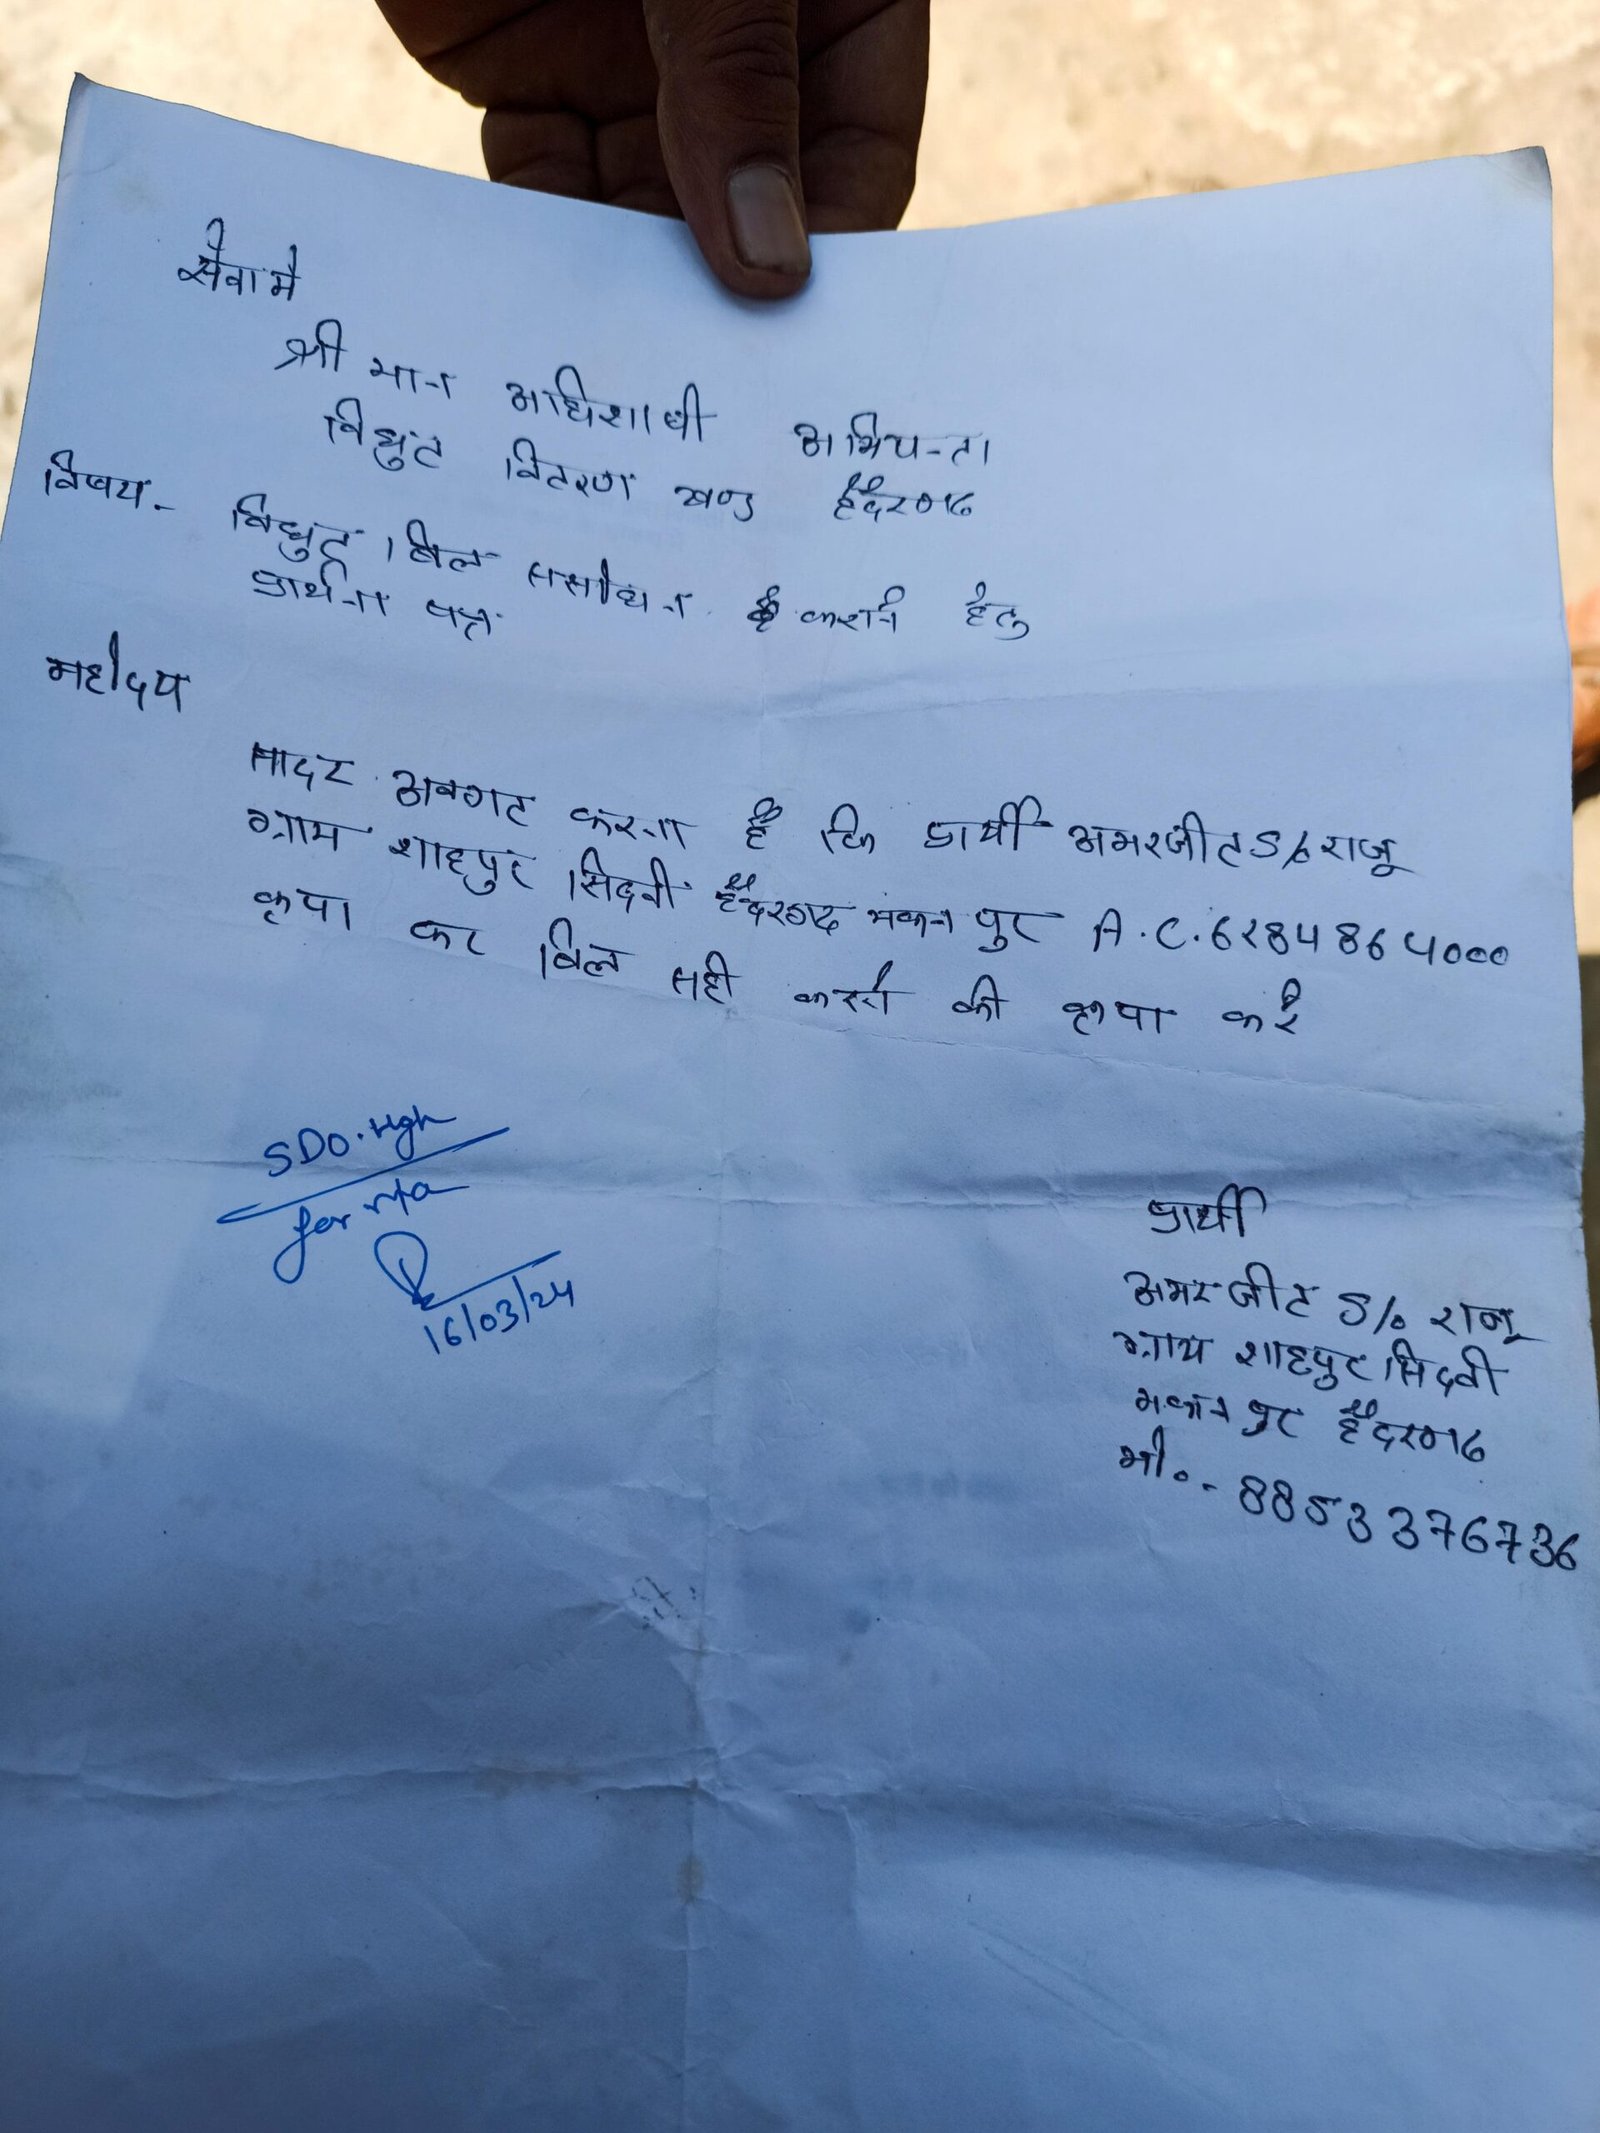 सेवा मे
श्री मान अधिशाषी अभियन्ता
विधुत वितरण खण्ड हैदरगढ
विषय - विधुत बिल ससोधन करने हेतु
प्रार्थना पत्र
महोदय
सादर अवगत करना है कि प्रार्थी अमरजीत S/o राजू
ग्राम शाहपुर सिदवी हैदरगढ मकन पुर A.C. 6284864000
कृपा कर बिल सही करने की कृपा करे
SDO. Hgh
for n/a
16/03/24
प्रार्थी
अमरजीत S/o राजू
ग्राम शाहपुर सिदवी
मकन पुर हैदरगढ
मो०- 8853376736